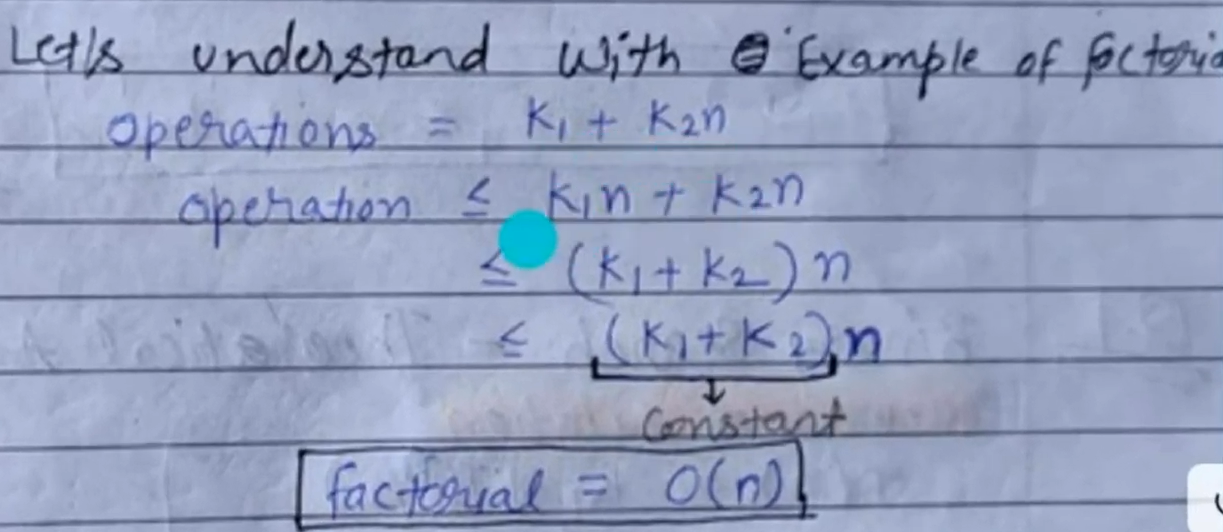 Let's understand with Example of factoria
Operations = K₁ + K₂n
Operation ≤ K₁n + K₂n
≤ (K₁ + K₂) n
≤ (K₁ + K₂) n
Constant
factorial = O(n)